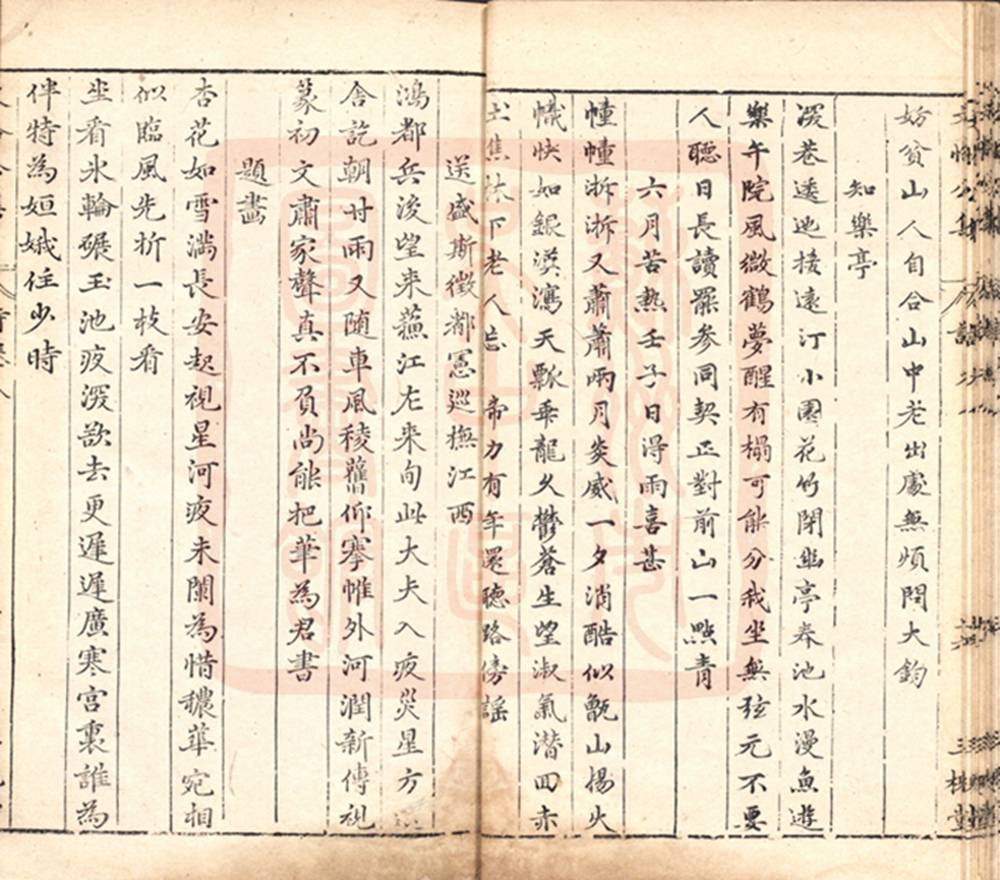 妨貧山人自合山中老出處無煩問大鈞
知樂亭
深巷透迤接遠汀小園花竹閉幽亭春池水漫魚遊
樂午院風微鶴夢醒有榻可能分我坐無弦元不要
人聽日長讀罷參同契正對前山一點青
六月苦熱壬子日得雨喜甚
幢幢浙浙又蕭蕭兩月炎威一夕消酷似甑山揚火
幟快如銀漢瀉天瓢乖龍久鬱蒼生望淑氣潛回赤
土焦林下老人忘帝力有年還聽路傍謠
送盛斯徵都憲巡撫江西
鴻都兵後望來蘇江左來旬此大夫入夜災星方
舍訖朝甘雨又隨車風稜舊仰搴帷外河潤新傳視
篆初文肅家聲真不負尚能把華為君書
題畫
杏花如雪滿長安起視星河夜未闌為惜穠華宛相
似臨風先折一枝看
坐看氷輪碾玉池夜深欲去更遲遲廣寒宮裏誰為
伴特為姮娥住少時